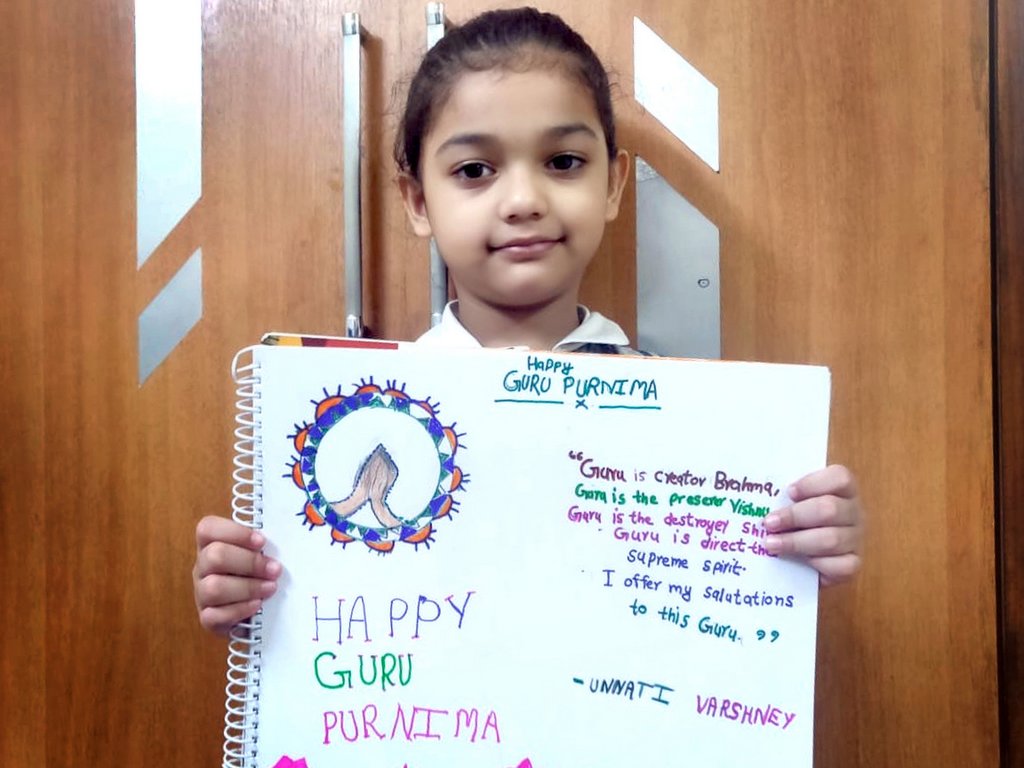 Happy
GURU PURNIMA
"Guru is creator Brahma,
Guru is the preserer
Guru is the destroyer
Guru is direct
supreme spirit.
I offer my salutations
to this Guru."
HAPPY
GURU
PURNIMA
- UNNATI VARSHNEY